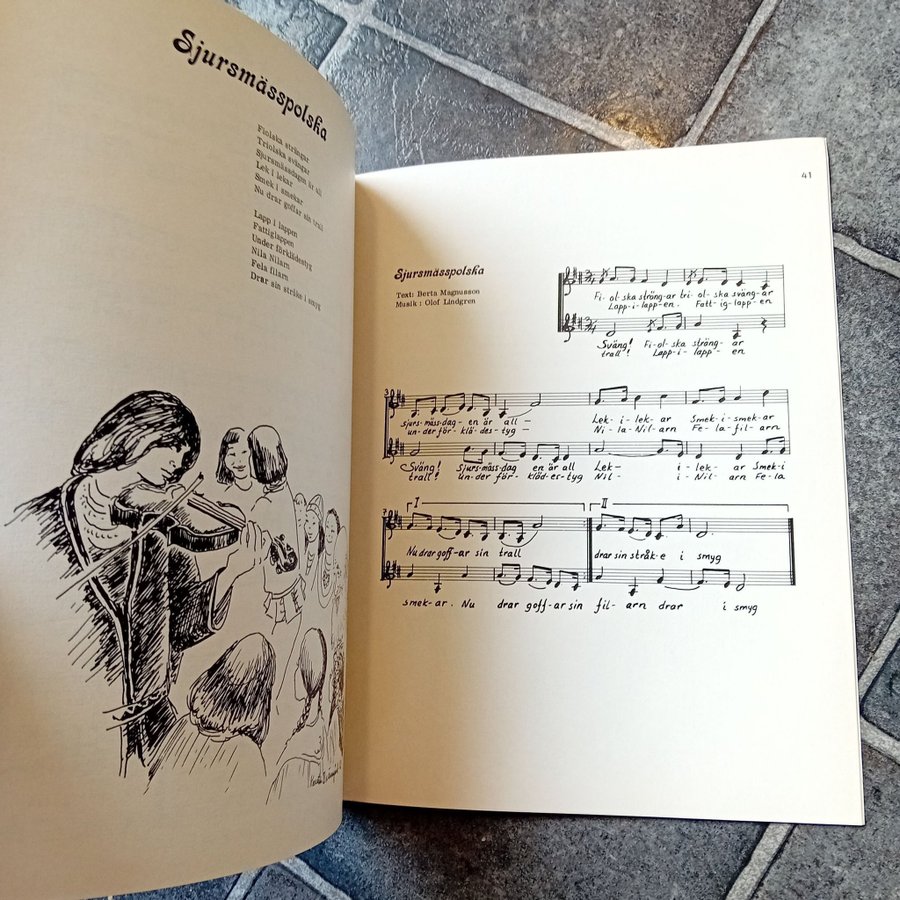 Sjursmässpolska
Fiolska strängar
Triolska svängar
Sjursmässdagen är all
Lek i lekar
Smek i smekar
Nu drar goffar sin trall
Lapp i lappen
Fattiglappen
Under förklädestyg
Nila Nilarn
Fela filarn
Drar sin stråke i smyg
41
Sjursmässpolska
Text: Berta Magnusson
Musik : Olof Lindgren
Fi-ol-ska sträng-ar tri-ol-ska sväng-ar
Lapp-i-lapp-en. Fatt-ig-lapp-en
Sväng! Fi-ol-ska sträng-ar
trall! Lapp-i-lapp-en
3
sjurs-mäss-dag-en är all- Lek-i-lek-ar Smek-i-smek-ar
un-der för-kläd-es-tyg- Ni-la-Nil-arn Fe-la-fil-arn
Sväng! Sjurs-mäss-dag en är all Lek- i-lek-ar Smek-i
trall! un-der för-kläd-es-tyg Nil- i-Nil-arn Fe-la
7 I II
Nu drar goff-ar sin trall drar sin stråk-e i smyg
smek-ar. Nu drar goff-ar sin fil-arn drar i smyg